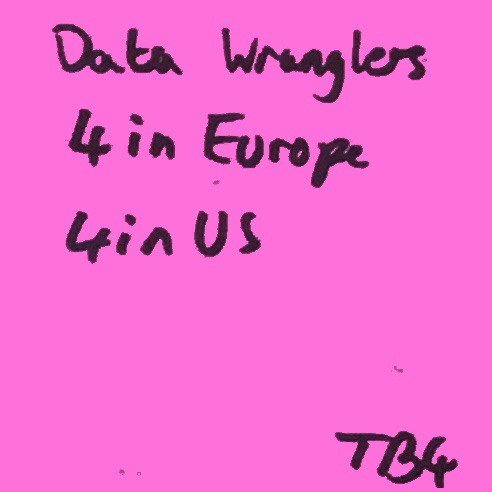 Data Wranglers
4 in Europe
4 in US
TB4